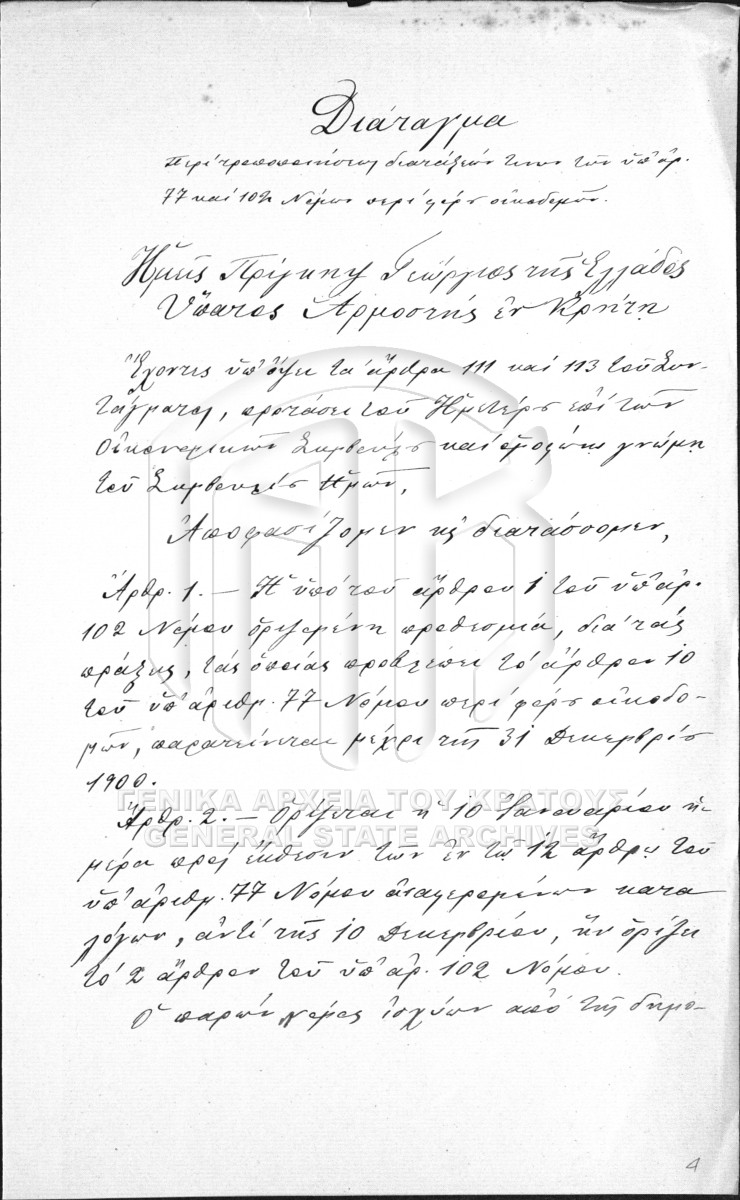 Διάταγμα
Περί τροποποιήσεως διατάξεών τινων των υπ' άρ.
77 και 102 Νόμων περί φόρου οικοδομών.
Ημείς Πρίγκηψ Γεώργιος της Ελλάδος
Ύπατος Αρμοστής εν Κρήτη
Έχοντες υπ' όψει τα άρθρα 111 και 113 του Συν-
τάγματος, προτάσει του Ημετέρου επί των
Οικονομικών Συμβούλου και ομοφώνω γνώμη
του Συμβουλίου Ημών,
Αποφασίζομεν κ διατάσσομεν,
Άρθρ. 1. — Η υπό του άρθρου 1 του υπ' άρ.
102 Νόμου οριζομένη προθεσμία, διά τας
πράξεις, τας οποίας προβλέπει το άρθρον 10
του υπ' αριθμ. 77 Νόμου περί φόρου οικοδο-
μών, παρατείνεται μέχρι της 31 Δεκεμβρίου
1900.
Άρθρ. 2. — Ορίζεται η 10 Ιανουαρίου η-
μέρα προς έκθεσιν των εν τω 12 άρθρω του
υπ' αριθμ. 77 Νόμου αναφερομένων κατα
λόγων, αντί της 10 Δεκεμβρίου, ην ορίζει
το 2 άρθρον του υπ' άρ. 102 Νόμου.
Ο παρών νόμος ισχύων από της δημο-
ΓΕΝΙΚΑ ΑΡΧΕΙΑ ΤΟΥ ΚΡΑΤΟΥΣ
GENERAL STATE ARCHIVES
4